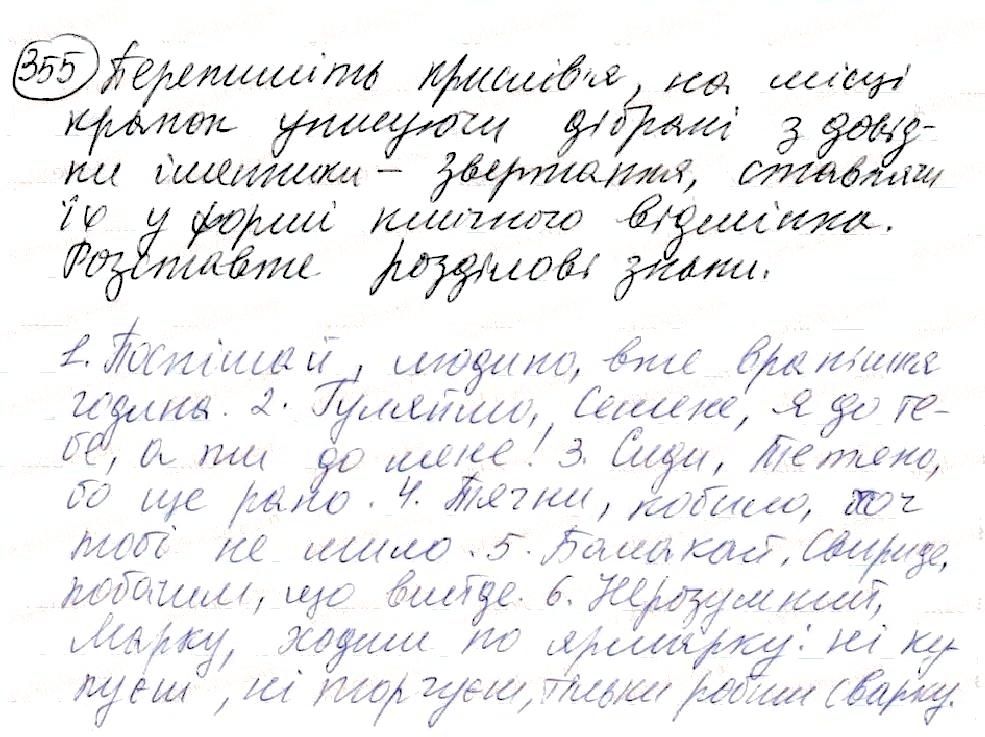 355 Перепишіть прислів'я, на місці
крапок уписуючи дібрані з довід-
ки іменники – звертання, ставлячи
їх у формі кличного відмінка.
Розставте розділові знаки.
1. Поспішай, людино, вже врапішня
година. 2. Гуляймо, Семене, я до те-
бе, а ти до мене! 3. Сиди, Тетяно,
бо ще рано. 4. Тягни, кобило, хоч
тобі не мило. 5. Балакай, Свириде,
побачим, що вийде. 6. Нерозумний,
Марку, ходиш по ярмарку: ні ку-
пуєш, ні торгуєш, тільки робиш сварку.